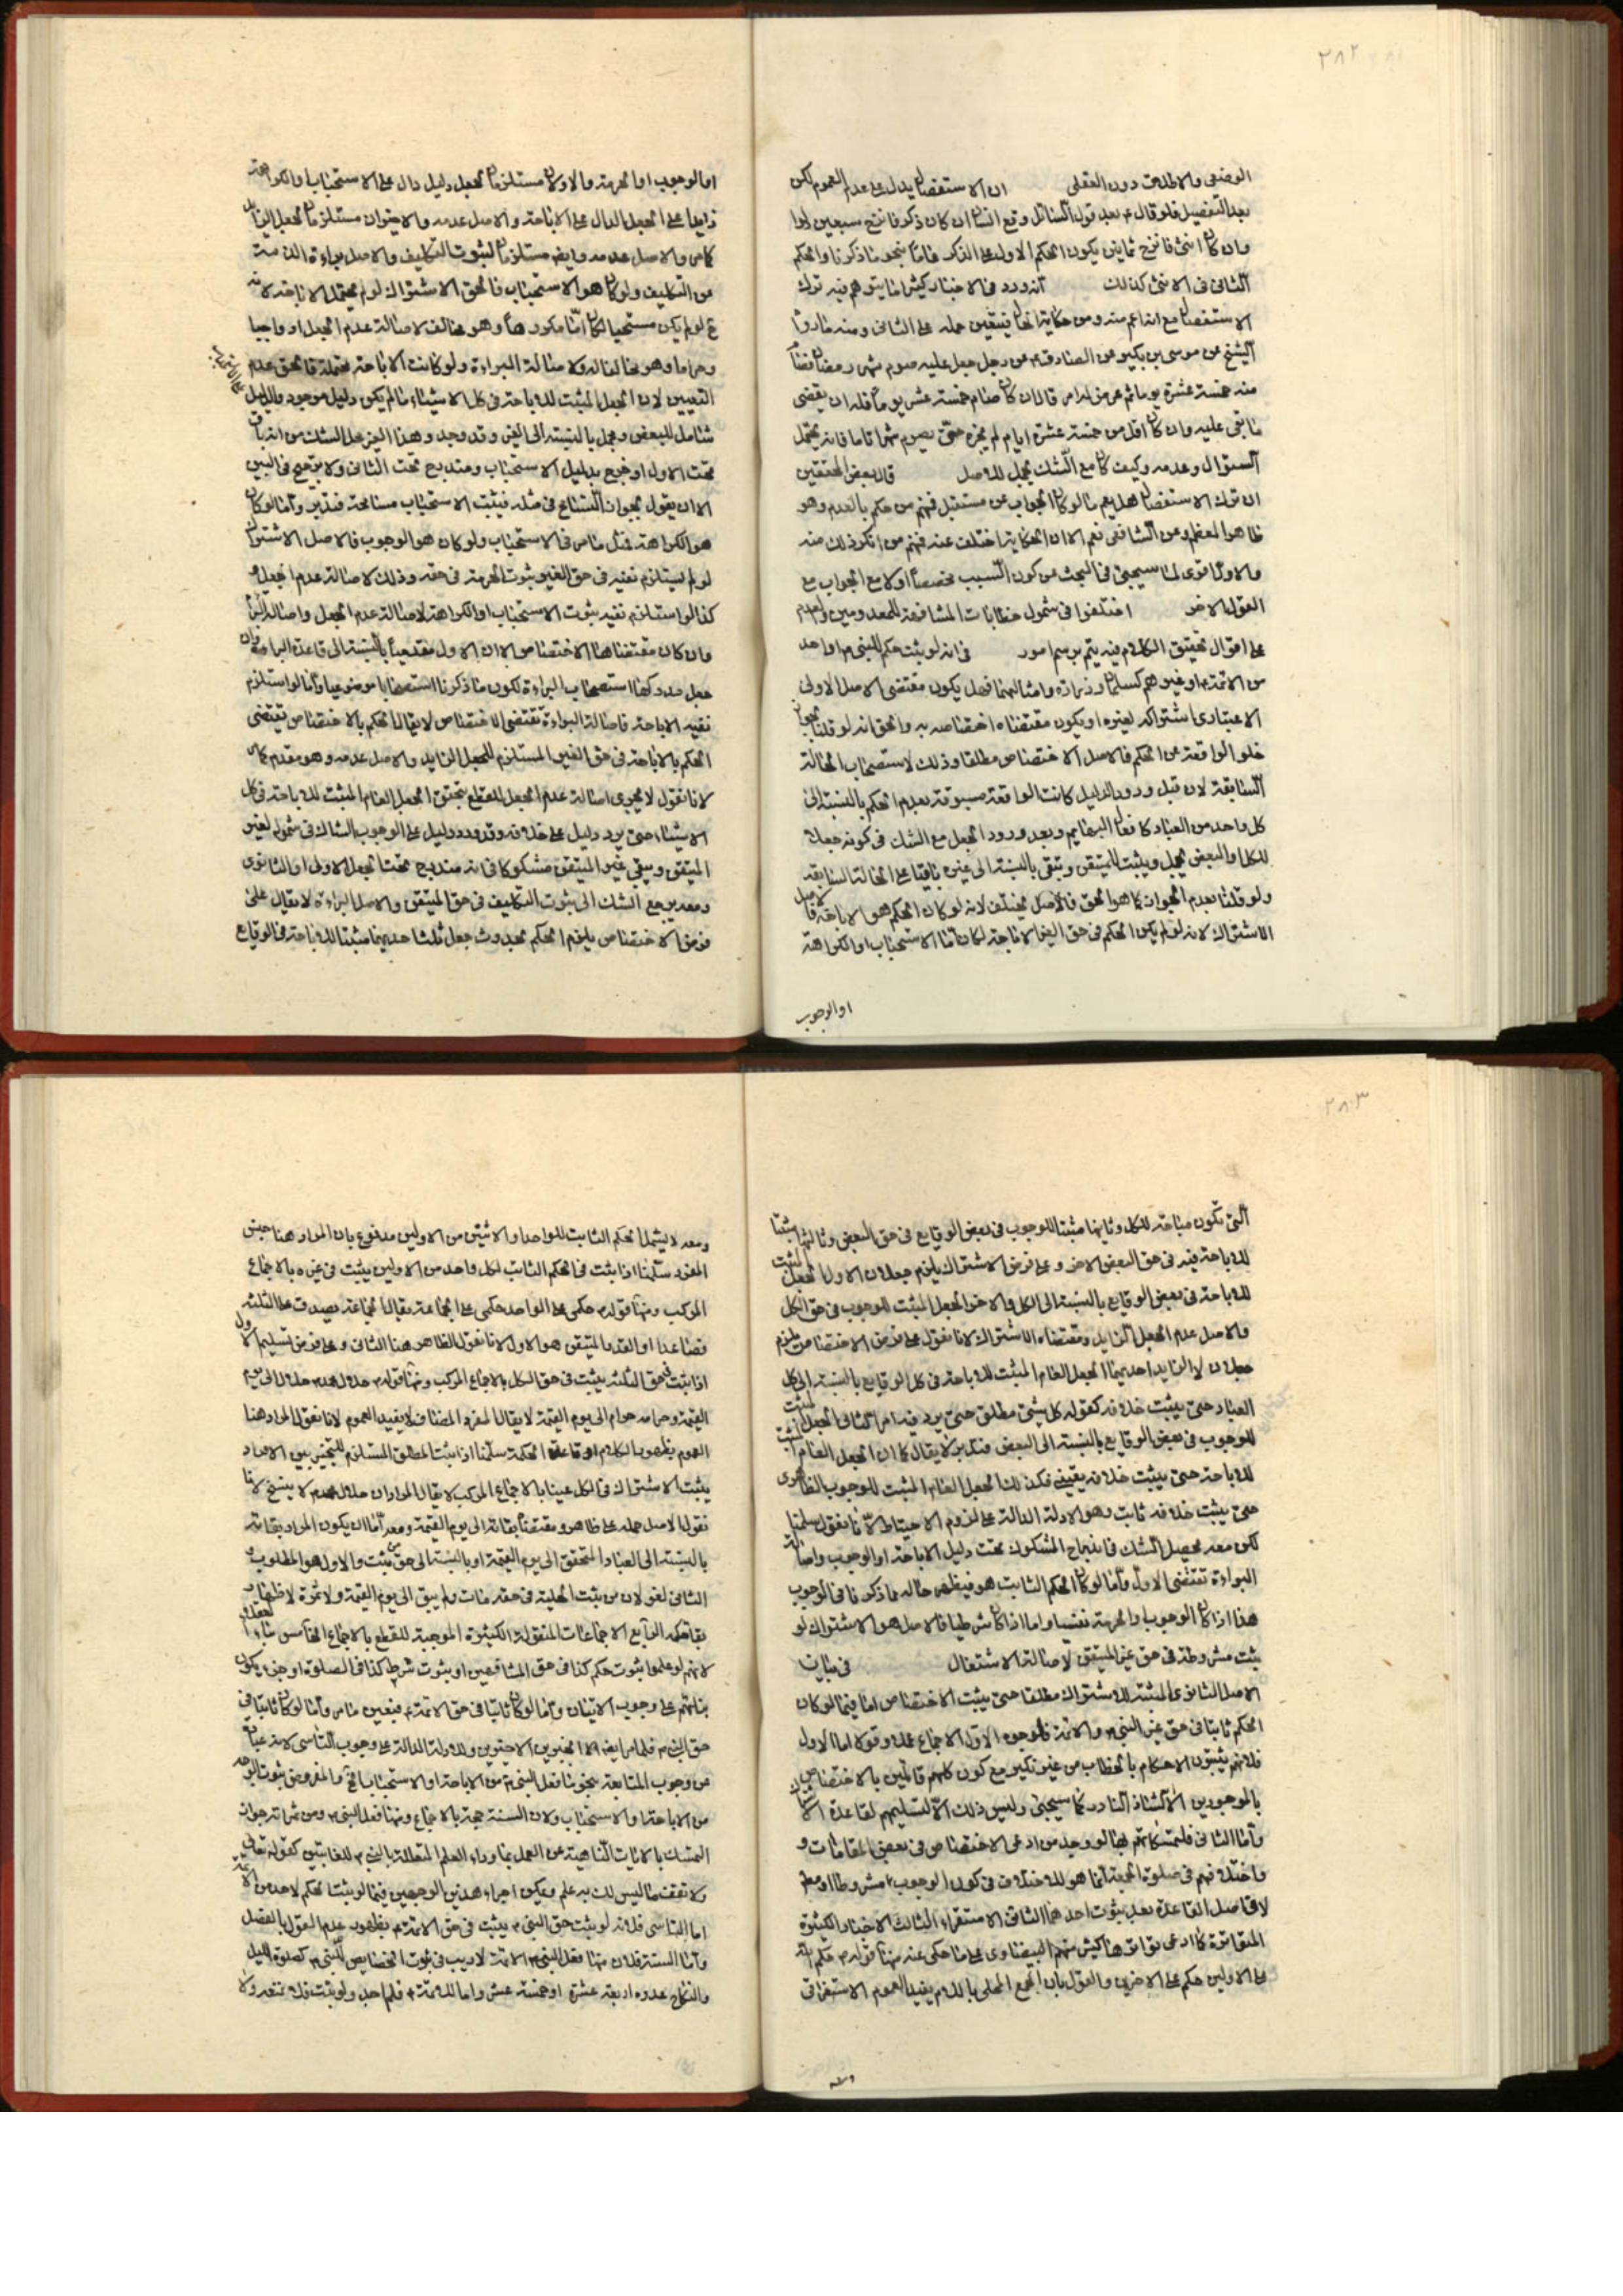 ٢٨٢
الوضعى والاطلاق دون العقلى ان الاستفصال يدل على عدم العموم لكن
بعد التفصيل فلو قال بعد قول السائل وقع الشاة ان كان ذكرا فانزح سبعين دلوا
وان كان انثى فانزح ثمانين يكون الحكم الاول على الذكر عاما بنحو ما ذكرنا والحكم
الثانى فى الانثى كذلك انه ورد فى الاخبار كثيرا ما يتوهم فيه ترك
الاستفصال مع انه اعم منه ومن حكاية الحال فيتعين حمله على الثانى ومنه ما رواه
الشيخ عن موسى بن بكير عن الصادق عن رجل جعل عليه صوم شهر رمضان فصام
منه خمسة عشرة يوما ثم عرض له امر قال ان كان صام خمسة عشر يوما فله ان يقضى
ما بقى عليه وان كان اقل من خمسة عشرة ايام لم يجزه حتى يصوم شهرا تاما فانه يحتمل
السؤال وعدمه وكيف كان مع الشك يحمل للاصل قال بعض المحققين
ان ترك الاستفصال هل يعم ما لو كان الجواب عن مستقبل فمنهم من حكم بالعدم وهو
ظاهر المعظم وعن الشافعى نعم الا ان الحكاية اختلفت عنه فمنهم من انكر ذلك منه
والاول اقوى لما سيجيئ فى البحث عن كون السبب مخصصا اولا مع الجواب مع
القول الاخر اختلفوا فى شمول خطابات المشافهة للمعدومين والعدم
على اقوال تحقيق الكلام فيه يتم برسم امور فى انه لو ثبت حكم للنبى او احد
من الائمة او غيرهم كسلمان وزرارة وامثالهما فهل يكون مقتضى الاصل الاولى
الاعتبارى اشتراكه لغيره او يكون مقتضاه اختصاصه به والحق انه لو قلنا بجواز
خلو الواقعة عن الحكم فالاصل الاختصاص مطلقا وذلك لاستصحاب الحالة
السابقة لان قبل ورود الدليل كانت الواقعة مسبوقة بعدم الحكم بالنسبة الى
كل واحد من العباد كافعال البهايم وبعد ورود الجعل مع الشك فى كونه جعلا
للكل او البعض يحمل ويثبت للمتيقن وتبقى بالنسبة الى غيره باقيا على الحالة السابقة
ولو قلنا بعدم الجواز كما هو الحق فالاصل يختلف لانه لو كان الحكم هو الاباحة فالاصل
الاشتراك لانه لو لم يكن الحكم فى حق الغير الاباحة لكان اما الاستحباب او الكراهة
او الوجوب
او الوجوب او الحرمة والاولان مستلزمان لجعل دليل دال على الاستحباب او الكراهة
زايدا على الجعل الدال على الاباحة والاصل عدمه والاخيران مستلزمان لجعل الزايد
كما مر والاصل عدمه وايضا مستلزمان لثبوت التكليف والاصل براءة الذمة
عن التكليف ولو كان هو الاستحباب فالحق الاشتراك لو لم يحتمل الاباحة لانه
ح لو لم يكن مستحبا لكان اما مكروها وهو مخالف لاصالة عدم الجعل او واجبا
وحراما وهو مخالف له ولاصالة البراءة ولو كانت الاباحة محتملة فالحق عدم
التعيين لان الجعل المثبت للاباحة فى كل الاشياء ما لم يكن دليل موجود والدليل
شامل للبعض ومجمل بالنسبة الى الغير وقد وجد وهذا الغير محل الشك من انه باق
تحت الاول او خرج بدليل الاستحباب ومندرج تحت الثانى ولا ترجيح فى البين
الا ان يقول بجواز التسامح فى مثله فيثبت الاستحباب مسامحة فتدبر واما لو كان
هو الكراهة فمثل ما مر فى الاستحباب ولو كان هو الوجوب فالاصل الاشتراك
لو لم يستلزم نفيه فى حق الغير ثبوت الحرمة فى حقه وذلك لاصالة عدم الجعل و
كذا لو استلزم نفيه ثبوت الاستحباب او الكراهة لاصالة عدم الجعل واصالة البراءة
وان كان مقتضاها الاختصاص الا ان الاول مقدم بالنسبة الى قاعدة البراءة
جعل مدركها استصحاب البراءة لكون ما ذكرنا استصحابا موضوعيا واما لو استلزم
نفيه الاباحة فاصالة البراءة تقتضى الاختصاص لا يقال الحكم بالاختصاص يقتضى
الحكم بالاباحة فى حق الغير المستلزم للجعل الزايد والاصل عدمه وهو مقدم كما مر
لانا نقول لا يجرى اصالة عدم الجعل للقطع بتحقق الجعل العام المثبت للاباحة فى كل
الاشياء حتى يرد دليل على خلافه وقد ورد دليل على الوجوب الشاك فى شموله لغير
المتيقن وبقى غير المتيقن مشكوكا فى انه مندرج تحت الجعل الاولى او الثانوى
ومعه يرجع الشك الى ثبوت التكليف فى حق المتيقن والاصل البراءة لا يقال على
فرض الاختصاص يلزم الحكم بحدوث جعل ثلثا احديهما مثبتا للاباحة فى الوقايع
٢٨٣
التى تكون مباحة للكل وثانيها مثبتا للوجوب فى بعض الوقايع فى حق البعض وثالثها مثبتا
للاباحة فيه فى حق البعض الاخر وعلى فرض الاشتراك يلزم جعلان الاول الجعل المثبت
للاباحة فى بعض الوقايع بالنسبة الى الكل والاخر الجعل المثبت للوجوب فى حق الكل
والاصل عدم الجعل الزايد ومقتضاه الاشتراك لانا نقول على فرض الاختصاص يلزم
جعلان لا الزايد احديهما الجعل العام المثبت للاباحة فى كل الوقايع بالنسبة الى كل
العباد حتى يثبت خلافه كقوله كل شيئ مطلق حتى يرد فيه امر الثانى الجعل المثبت
للوجوب فى بعض الوقايع بالنسبة الى البعض فتدبر لا يقال كما ان الجعل العام المثبت
للاباحة حتى يثبت خلافه يقينى فكذلك الجعل العام المثبت للوجوب الظاهرى
حتى يثبت خلافه ثابت وهو الادلة الدالة على لزوم الاحتياط لانا نقول سلمنا
لكن معه يحصل الشك فى اندراج المشكوك تحت دليل الاباحة او الوجوب واصالة
البراءة تقتضى الاول واما لو كان الحكم الثابت هو فيظهر حاله مما ذكرنا فى الوجوب
هذا اذا كان الوجوب او الحرمة نفسيا واما اذا كان شرطيا فالاصل هو الاشتراك لو
ثبت مشروطة فى حق غير المتيقن لاصالة الاشتغال فى بيان
الاصل الثانوى المثبتة للاشتراك مطلقا حتى يثبت الاختصاص اما فيما لو كان
الحكم ثابتا فى حق غير النبى والائمة فلوجوه الاول الاجماع عملا وقولا اما الاول
فلانهم يثبتون الاحكام بالخطاب من غير نكير مع كون كلهم قائلين بالاختصاص
بالموجودين الا الشاذ النادر كما سيجيئ وليس ذلك الا لتسليمهم لقاعدة الاشتراك
واما الثانى فلتمسكاتهم بها لو وجد من ادعى الاختصاص فى بعض المقامات و
واختلافهم فى صلوة الجمعة انما هو للاختلاف فى كون الوجوب مشروطا او معه
لا فى اصل القاعدة بعد ثبوت احدهما الثانى الاستقراء الثالث الاخبار الكثيرة
المتواترة كما ادعى تواترها كثير منهم البيضاوى على ما حكى عنه منها قوله حكم الله
على الاولين حكم على الاخرين والقول بان الجمع المحلى باللام يفيد العموم الاستغراقى
ومعه لا يشمل الحكم الثابت للواحد او الاثنين من الاولين مدفوع بان المراد هنا جنس
المفرد سلمنا اذا ثبت فى الحكم الثابت لكل واحد من الاولين يثبت فى غيره بالاجماع
المركب ومنها قوله حكمى على الواحد حكمى على الجماعة يقال الجماعة يصدق على الثلثة
فصاعدا او القدر المتيقن هو الاول لانا نقول الظاهر هنا الثانى وعلى فرض تسليم الاول
اذا ثبت فى حق الثلثة يثبت فى حق الكل بالاجماع المركب ومنها قوله حلال محمد حلال الى يوم
القيمة وحرامه حرام الى يوم القيمة لا يقال المفرد المضاف لا يفيد العموم لانا نقول المراد هنا
العموم بظهور الكلام او قاعدة الحكمة سلمنا اذا ثبت المطلق المستلزم للتخيير بين الافراد
يثبت الاشتراك فى الكل عينا بالاجماع المركب لا يقال المراد ان حلال محمد لا ينسخ لانا
نقول الاصل حمله على ظاهره ومقتضاه بقائه الى يوم القيمة ومعه اما ان يكون المراد بقائه
بالنسبة الى العباد المتحقق الى يوم القيمة او بالنسبة الى حق من ثبت والاول هو المطلوب و
الثانى لغو لان من يثبت الحلية فى حقه مات ولم يبق الى يوم القيمة ولا ثمرة لاظهار
بقاء حكمه الرابع الاجماعات المنقولة الكثيرة الموجبة للقطع بالاجماع الخامس بناء العقلاء
لانهم لو علموا بثبوت حكم كذا فى حق المشافهين او بثبوت شرط كذا فى الصلوة او جزء يكون
بنائهم على وجوب الاتيان واما لو كان ثابتا فى حق الائمة فيتعين ما مر واما لو كان ثابتا فى
حق النبى فلما مر ايضا الا الخبرين الاخيرين وللادلة الدالة على وجوب التأسى لانه عبارة
عن وجوب المتابعة بنحو ما فعل النبى من الاباحة او الاستحباب الخ والمفروض ثبوت الواحد
من الاباحة او الاستحباب ولان السنة حجة بالاجماع ومنها فعل النبى ومن ثمراته جواز
التمسك بالايات الناهية عن العمل بما وراء العلم المتعلقة بالنبى للغائبين كقوله تعالى
ولا تقف ما ليس لك به علم ويمكن اجراء هذين الوجهين فيما لو يثبت الحكم لاحد من الائمة
اما التاسى فلانه لو يثبت حق النبى يثبت فى حق الائمة بظهور عدم القول بالفصل
واما السنة فلان منها فعل النبى الائمة لا ريب فى ثبوت الخصايص للنبى كصلوة الليل
والنكاح عدوه اربعة عشرة او خمسة عشر واما للائمة فلم اجد ولو يثبت فلا نتعد ولا